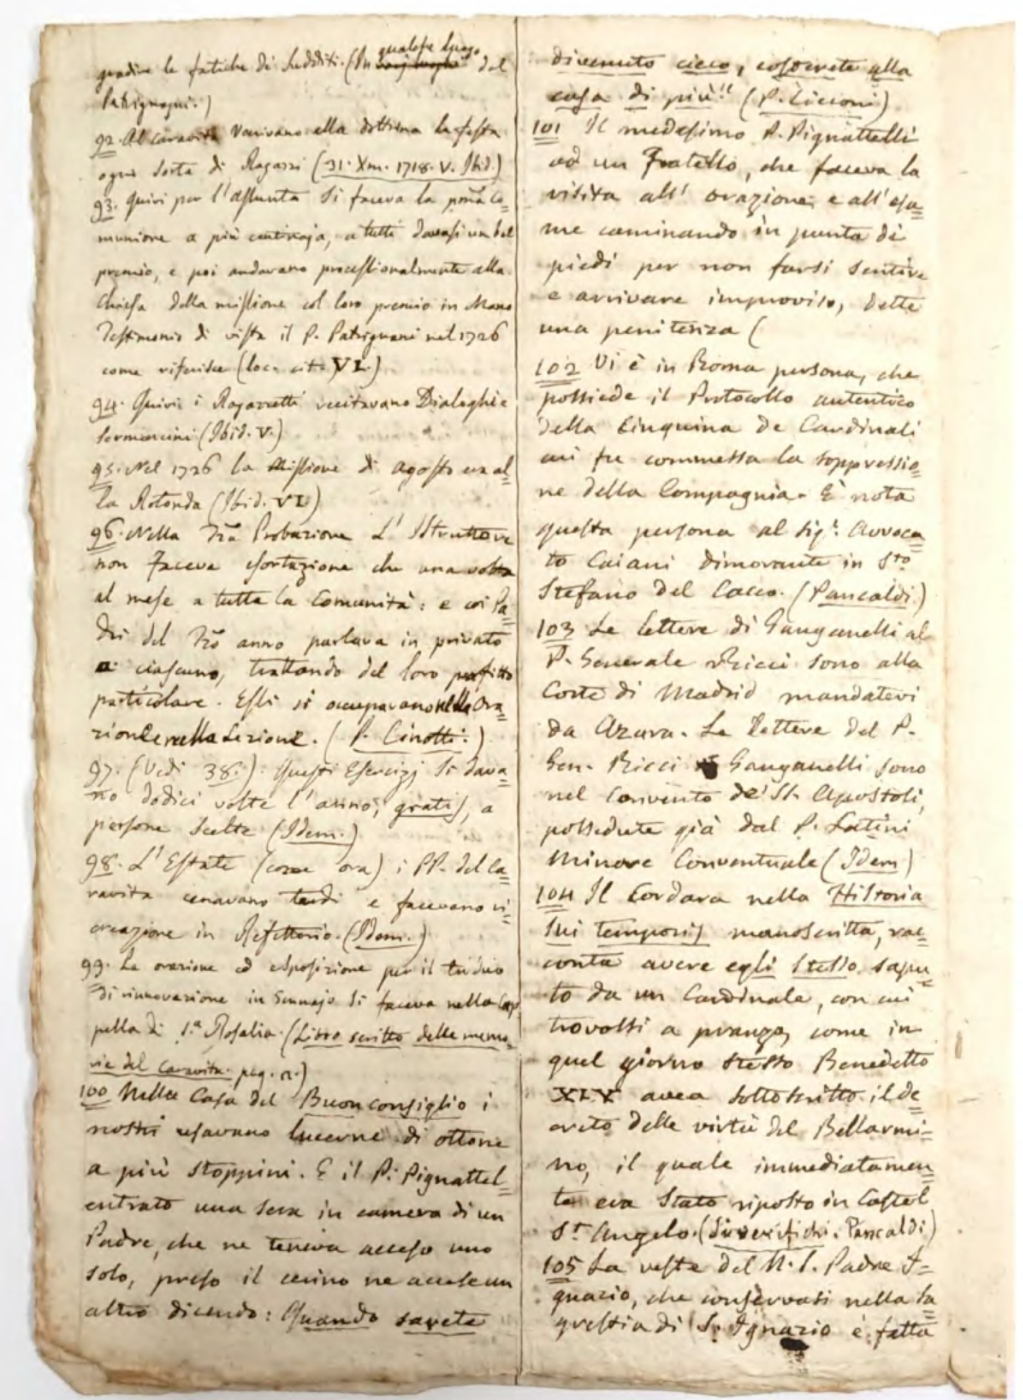 gradire le fatiche di Sudditi. (In qualche luogo del
Patrignani.)
92. Al Caravita Venivano alla dottrina la festa
ogni sorta di Ragazzi (31. Xm. 1718. V. Ibid.)
93. Quivi per l'Assunta si faceva la pma Co=
munione a più centinaja, a tutti davasi un bel
premio, e poi andavano processionalmente alla
Chiesa della missione col loro premio in Mano
Testimonio di vista il P. Patrignani nel 1726
come riferisce (loc. cit. VI.)
94. Quivi i Ragazzetti recitavano Dialoghi e
Sermoncini (Ibid. V.)
95. Nel 1726 la Missione di Agosto era al=
la Rotonda (Ibid. VI)
96. Nella 3a Probazione L'Istruttore
non faceva esortazione che una volta
al mese a tutta la Comunità: e coi Pa=
dri del 3o anno parlava in privato
a ciascuno, trattando del loro profitto
particolare. Essi si occupavano nelle Ora=
zioni e nella Lezione. (P. Cinotti.)
97. (Vedi 38.) Questi Esercizj si dava=
no dodici volte l'anno, gratis, a
persone scelte (Idem.)
98. L'Estate (come ora) i PP. del Ca=
ravita cenavano tardi e facevano ri=
creazione in Refettorio. (Idem.)
99. Le orazione ed esposizione per il triduo
di rinnovazione in Gennajo si faceva nella Cap
pella di S.a Rosalia. (Libro scritto delle memo=
rie del Caravita. pag. 2.)
100 Nella Casa del Buonconsiglio i
nostri usavano lucerne di ottone
a più stoppini. E il P. Pignattel=
entrato una sera in camera di un
Padre, che ne teneva acceso uno
solo, preso il cerino ne accese un
altro dicendo: Quando sarete
divenuto cieco, costerete alla
casa di più!! (P. Cicconi)
101 Il medesimo P. Pignattelli
ad un Fratello, che faceva la
visita all'orazione, e all'esa=
me caminando in punta di
piedi per non farsi sentire
e arrivare improviso, dette
una penitenza (
102 Vi è in Roma persona, che
possiede il Protocollo autentico
della Cinquina de Cardinali
cui fu commessa la soppressio=
ne della Compagnia. È nota
questa persona al Sig.r Avvoca=
to Caiani dimorante in Sto
Stefano del Cacco. (Pancaldi.)
103 Le lettere di Ganganelli al
P. Generale Ricci sono alla
Corte di Madrid mandatevi
da Azara. Le lettere del P.
Gen. Ricci Ganganelli sono
nel Convento de' SS. Apostoli,
possedute già dal P. Latini
Minore Conventuale (Idem)
104 Il Cordara nella Historia
sui temporis manoscritta, rac=
conta avere egli stesso sapu=
to da un Cardinale, con cui
trovossi a pranzo, come in
quel giorno stesso Benedetto
XIV avea sottoscritto il de=
creto delle virtù del Bellarmi=
no, il quale immediatamen=
te era stato riposto in Castel
St Angelo. (Si verifichi. Pancaldi)
105 La veste del N. S. Padre I=
gnazio, che conservasi nella Sa=
grestia di S. Ignazio è fatta